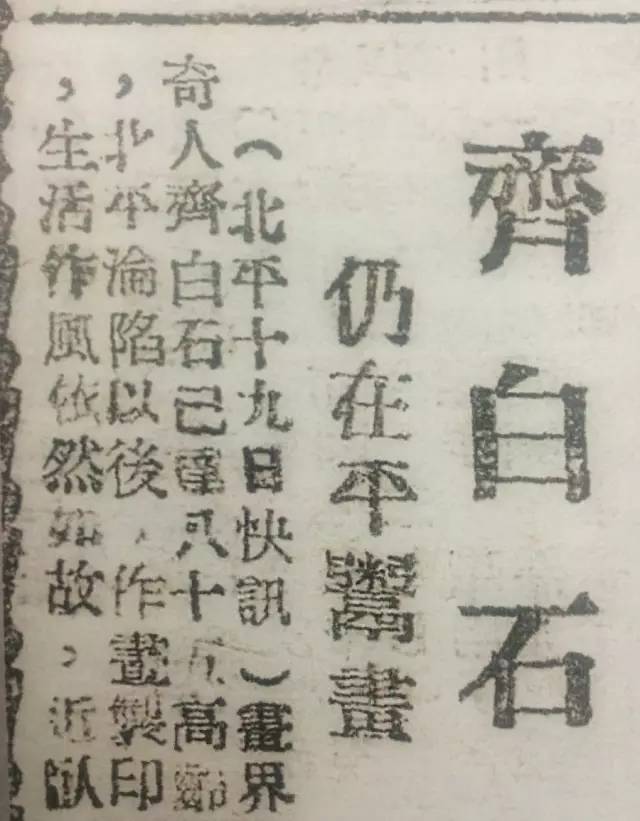 齊白石
仍在平鬻畫
(北平十九日快訊)畫界
奇人齊白石已八十五高齡
,北平淪陷以後,作畫製印
,生活作風依然如故,近臥